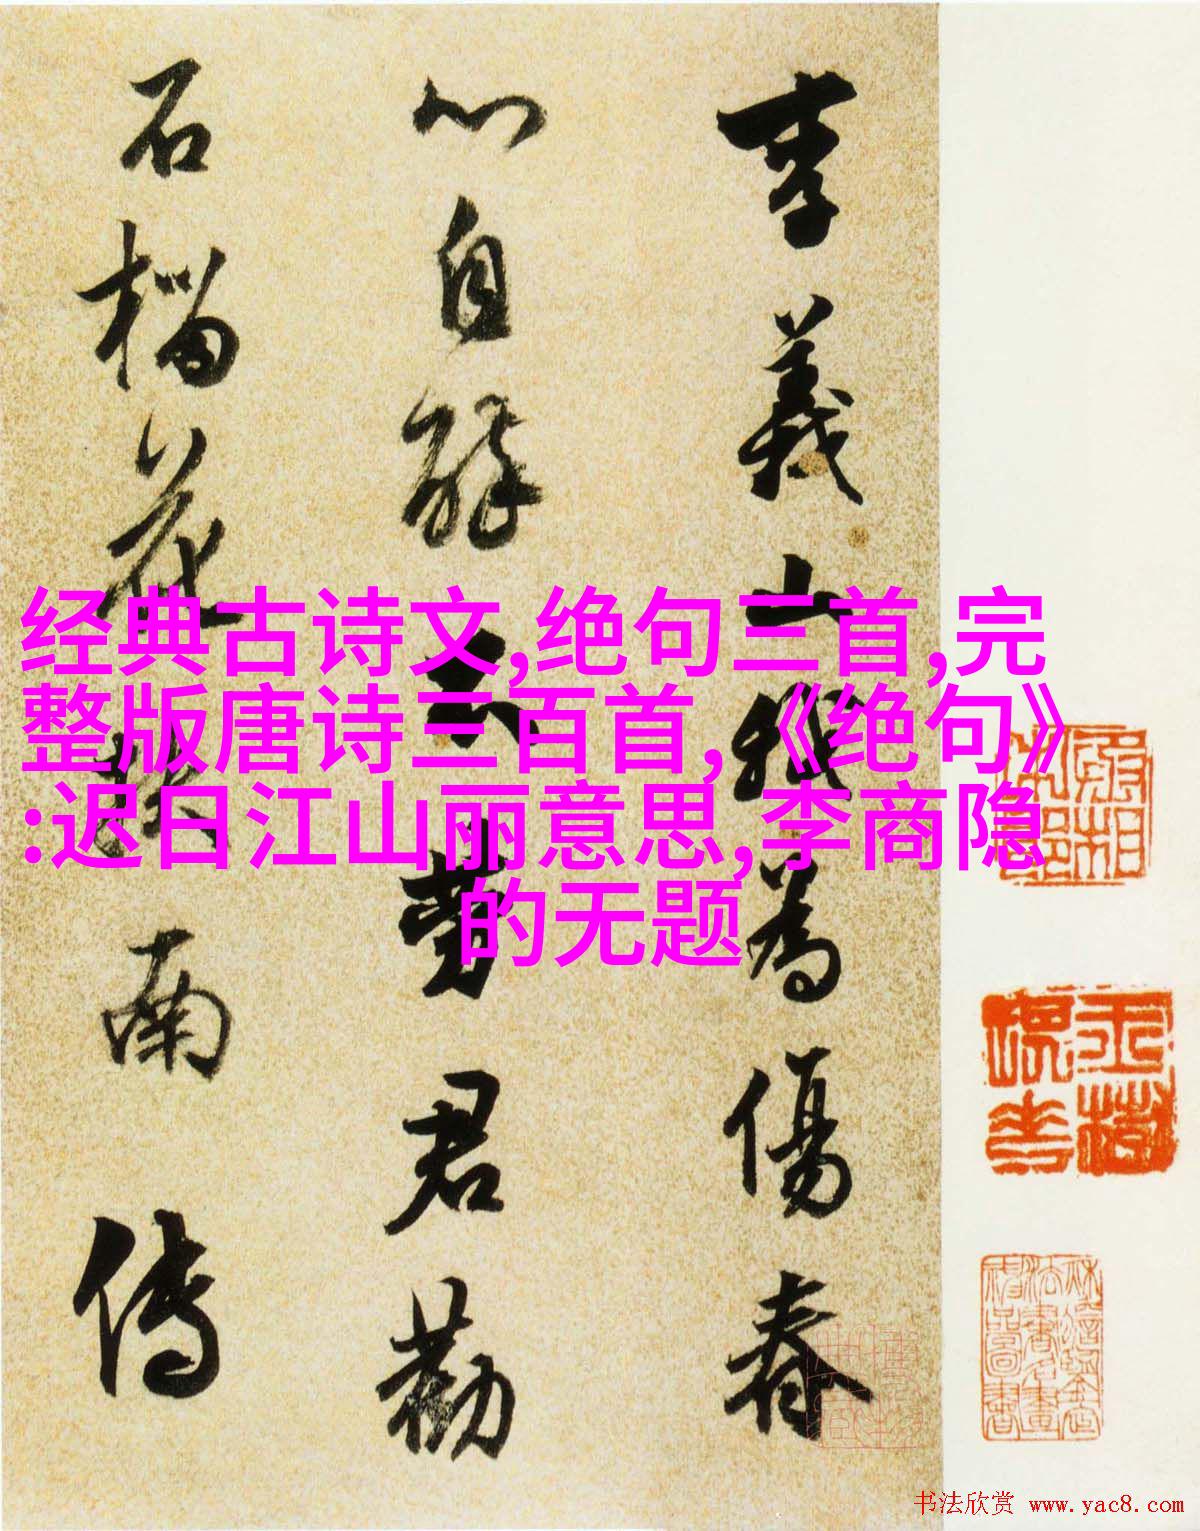 李義山我為傷春
心自醉不勞君勸
石榴花
南傳
经典古诗文,绝句三首,完
整版唐诗三百首,《绝句》
:迟日江山丽意思,李商隐
的无题
书法欣赏 www.yac8.com